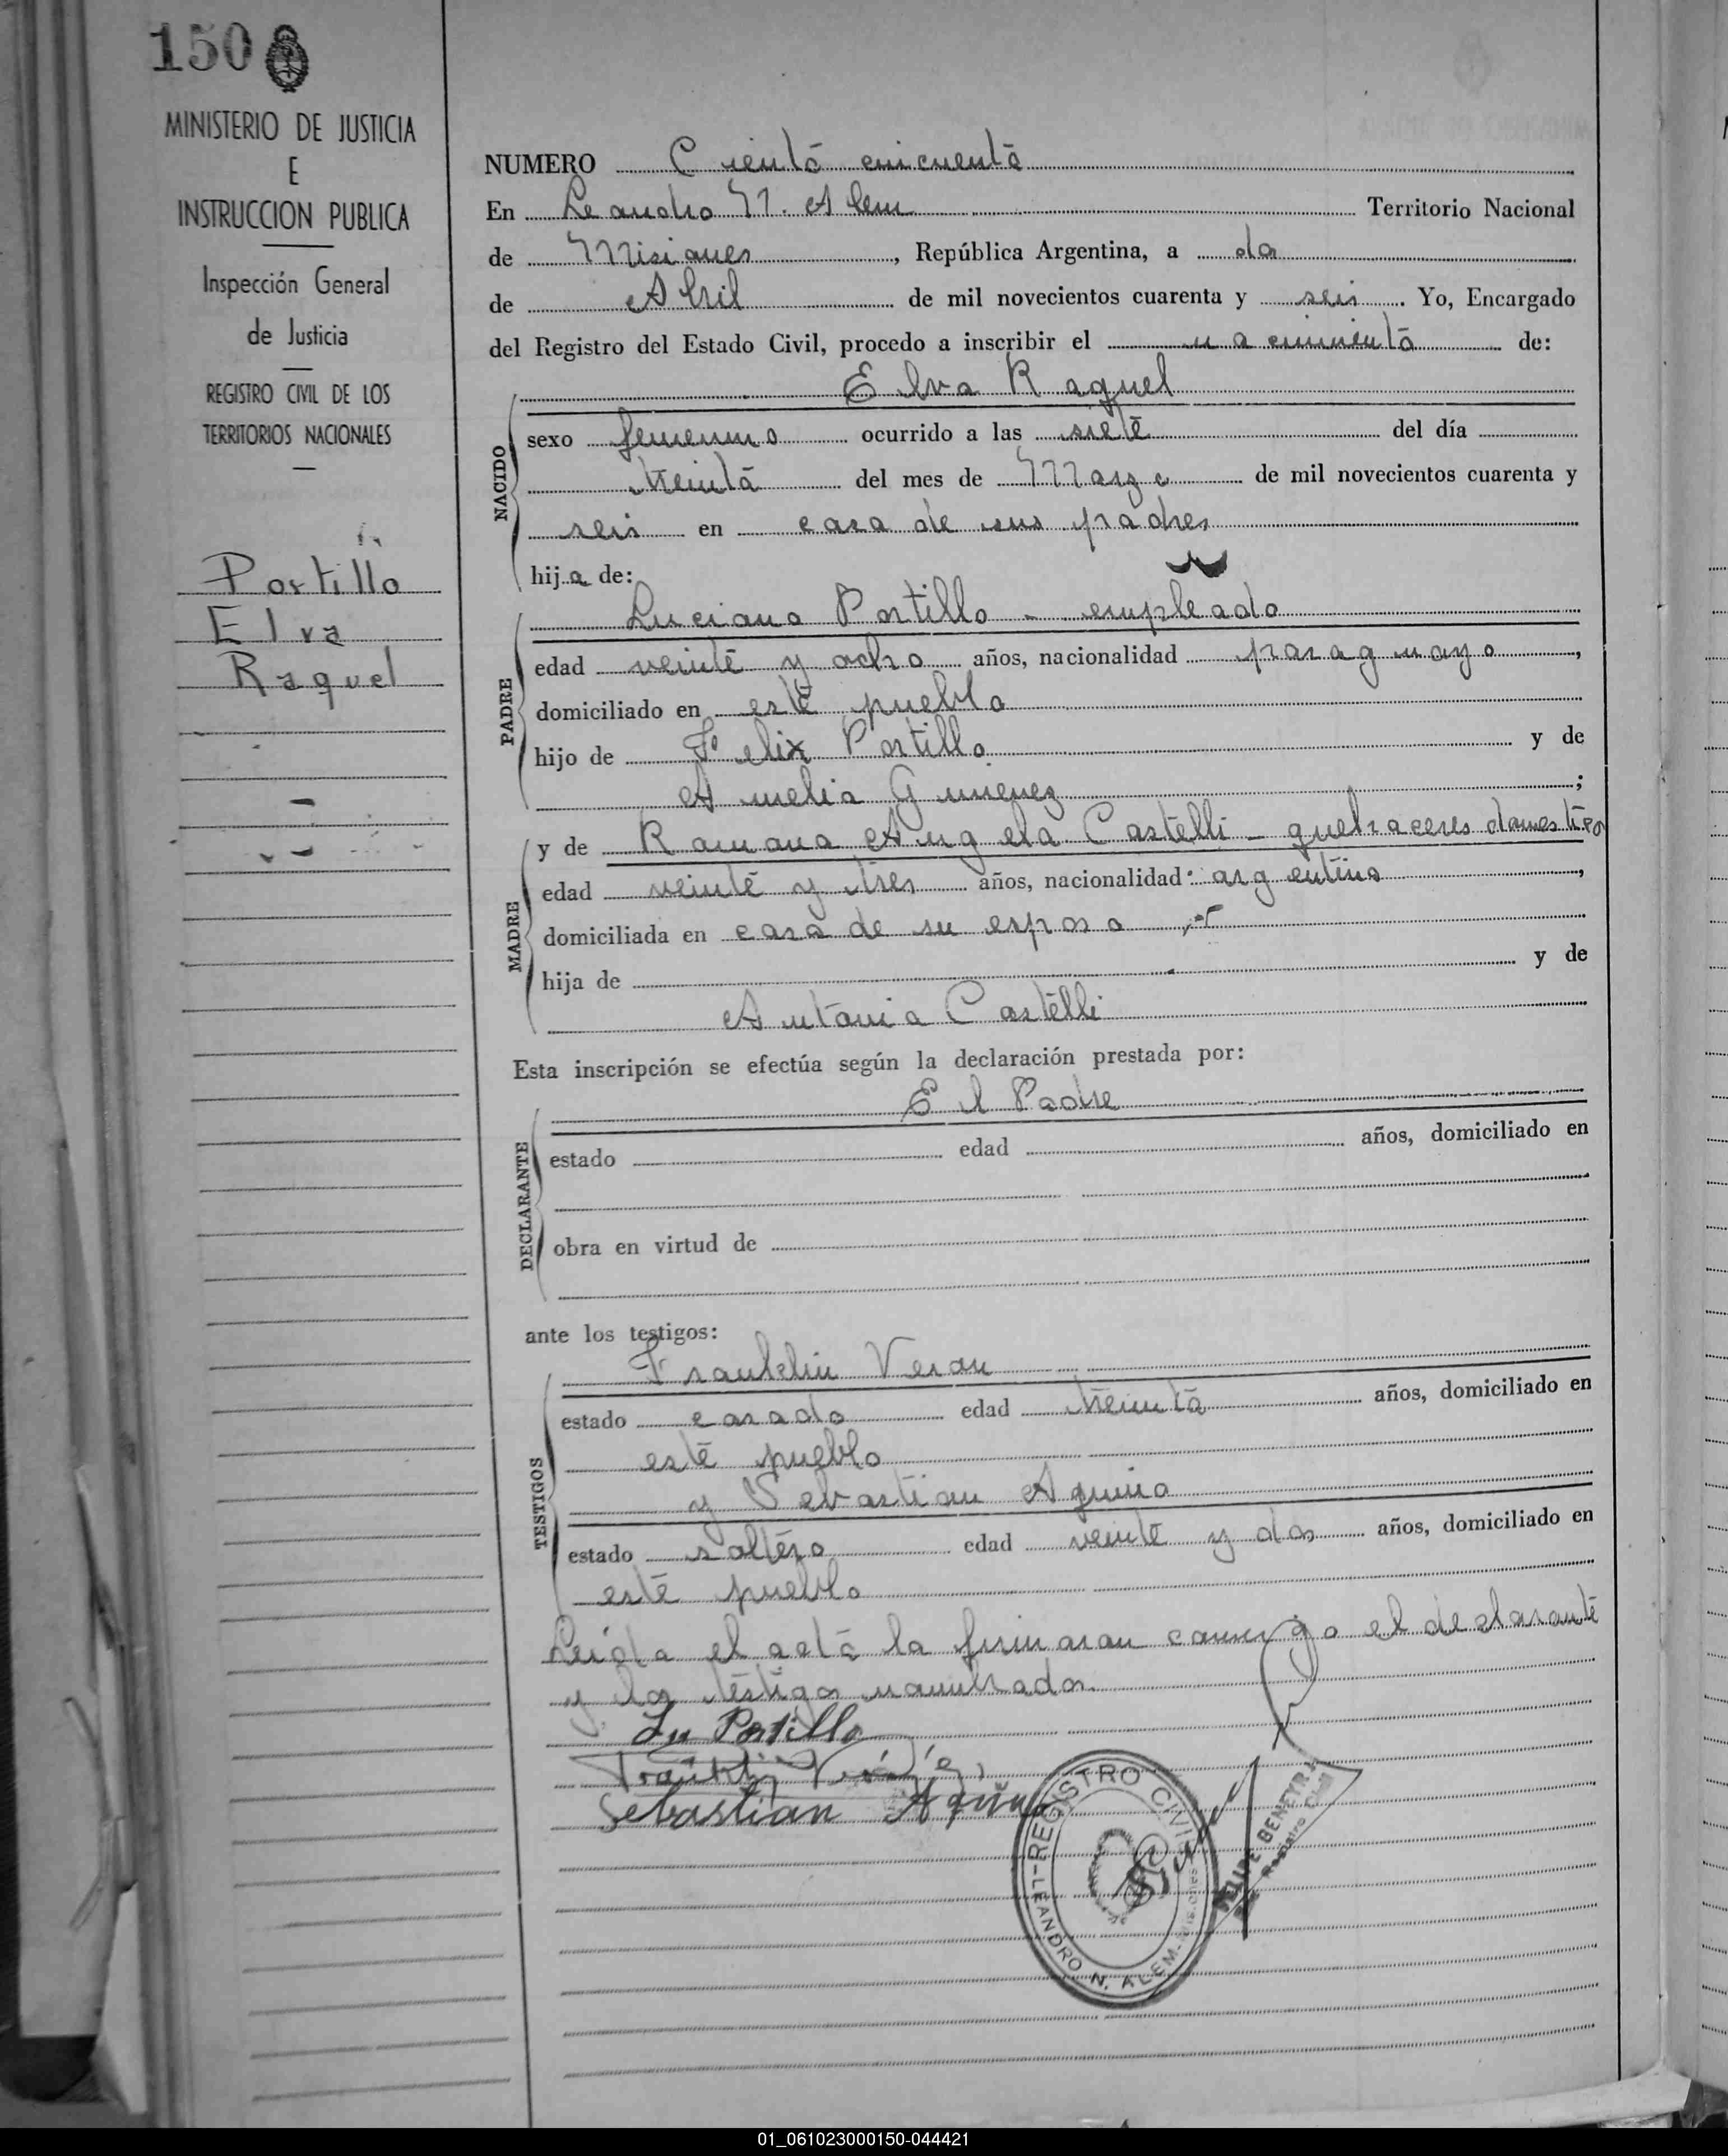 150
MINISTERIO DE JUSTICIA
E
INSTRUCCION PUBLICA
Inspección General
de Justicia
REGISTRO CIVIL DE LOS
TERRITORIOS NACIONALES
Portillo
Elva
Raquel
NUMERO Ciento cincuenta
En Leandro N. Alem Territorio Nacional
de Misiones, República Argentina, a dos
de Abril de mil novecientos cuarenta y seis. Yo, Encargado
del Registro del Estado Civil, procedo a inscribir el nacimiento de:
Elva Raquel
NACIDO
sexo femenino ocurrido a las siete del día
treinta del mes de Marzo de mil novecientos cuarenta y
seis en casa de sus padres
hija de:
PADRE
Luciano Portillo - empleado
edad veinte y ocho años, nacionalidad paraguayo,
domiciliado en este pueblo
hijo de Felix Portillo y de
Amelia Gimenez;
MADRE
y de Ramona Angela Castelli - quehaceres domesticos
edad veinte y tres años, nacionalidad argentina,
domiciliada en casa de su esposo
hija de y de
Antonia Castelli
Esta inscripción se efectúa según la declaración prestada por:
El Padre
DECLARANTE
estado edad años, domiciliado en
obra en virtud de
ante los testigos:
TESTIGOS
Franklin Veron
estado casado edad treinta años, domiciliado en
este pueblo
y Sebastian Aquino
estado soltero edad veinte y dos años, domiciliado en
este pueblo
Leida el acta la firmaran conmigo el declarante
y los testigos nombrados.
Lu Portillo
Franklin
Sebastian Aquino
REGISTRO CIVIL
LEANDRO N. ALEM - Misiones
FELIPE BENEYRA
Registro Civil
01_061023000150-044421